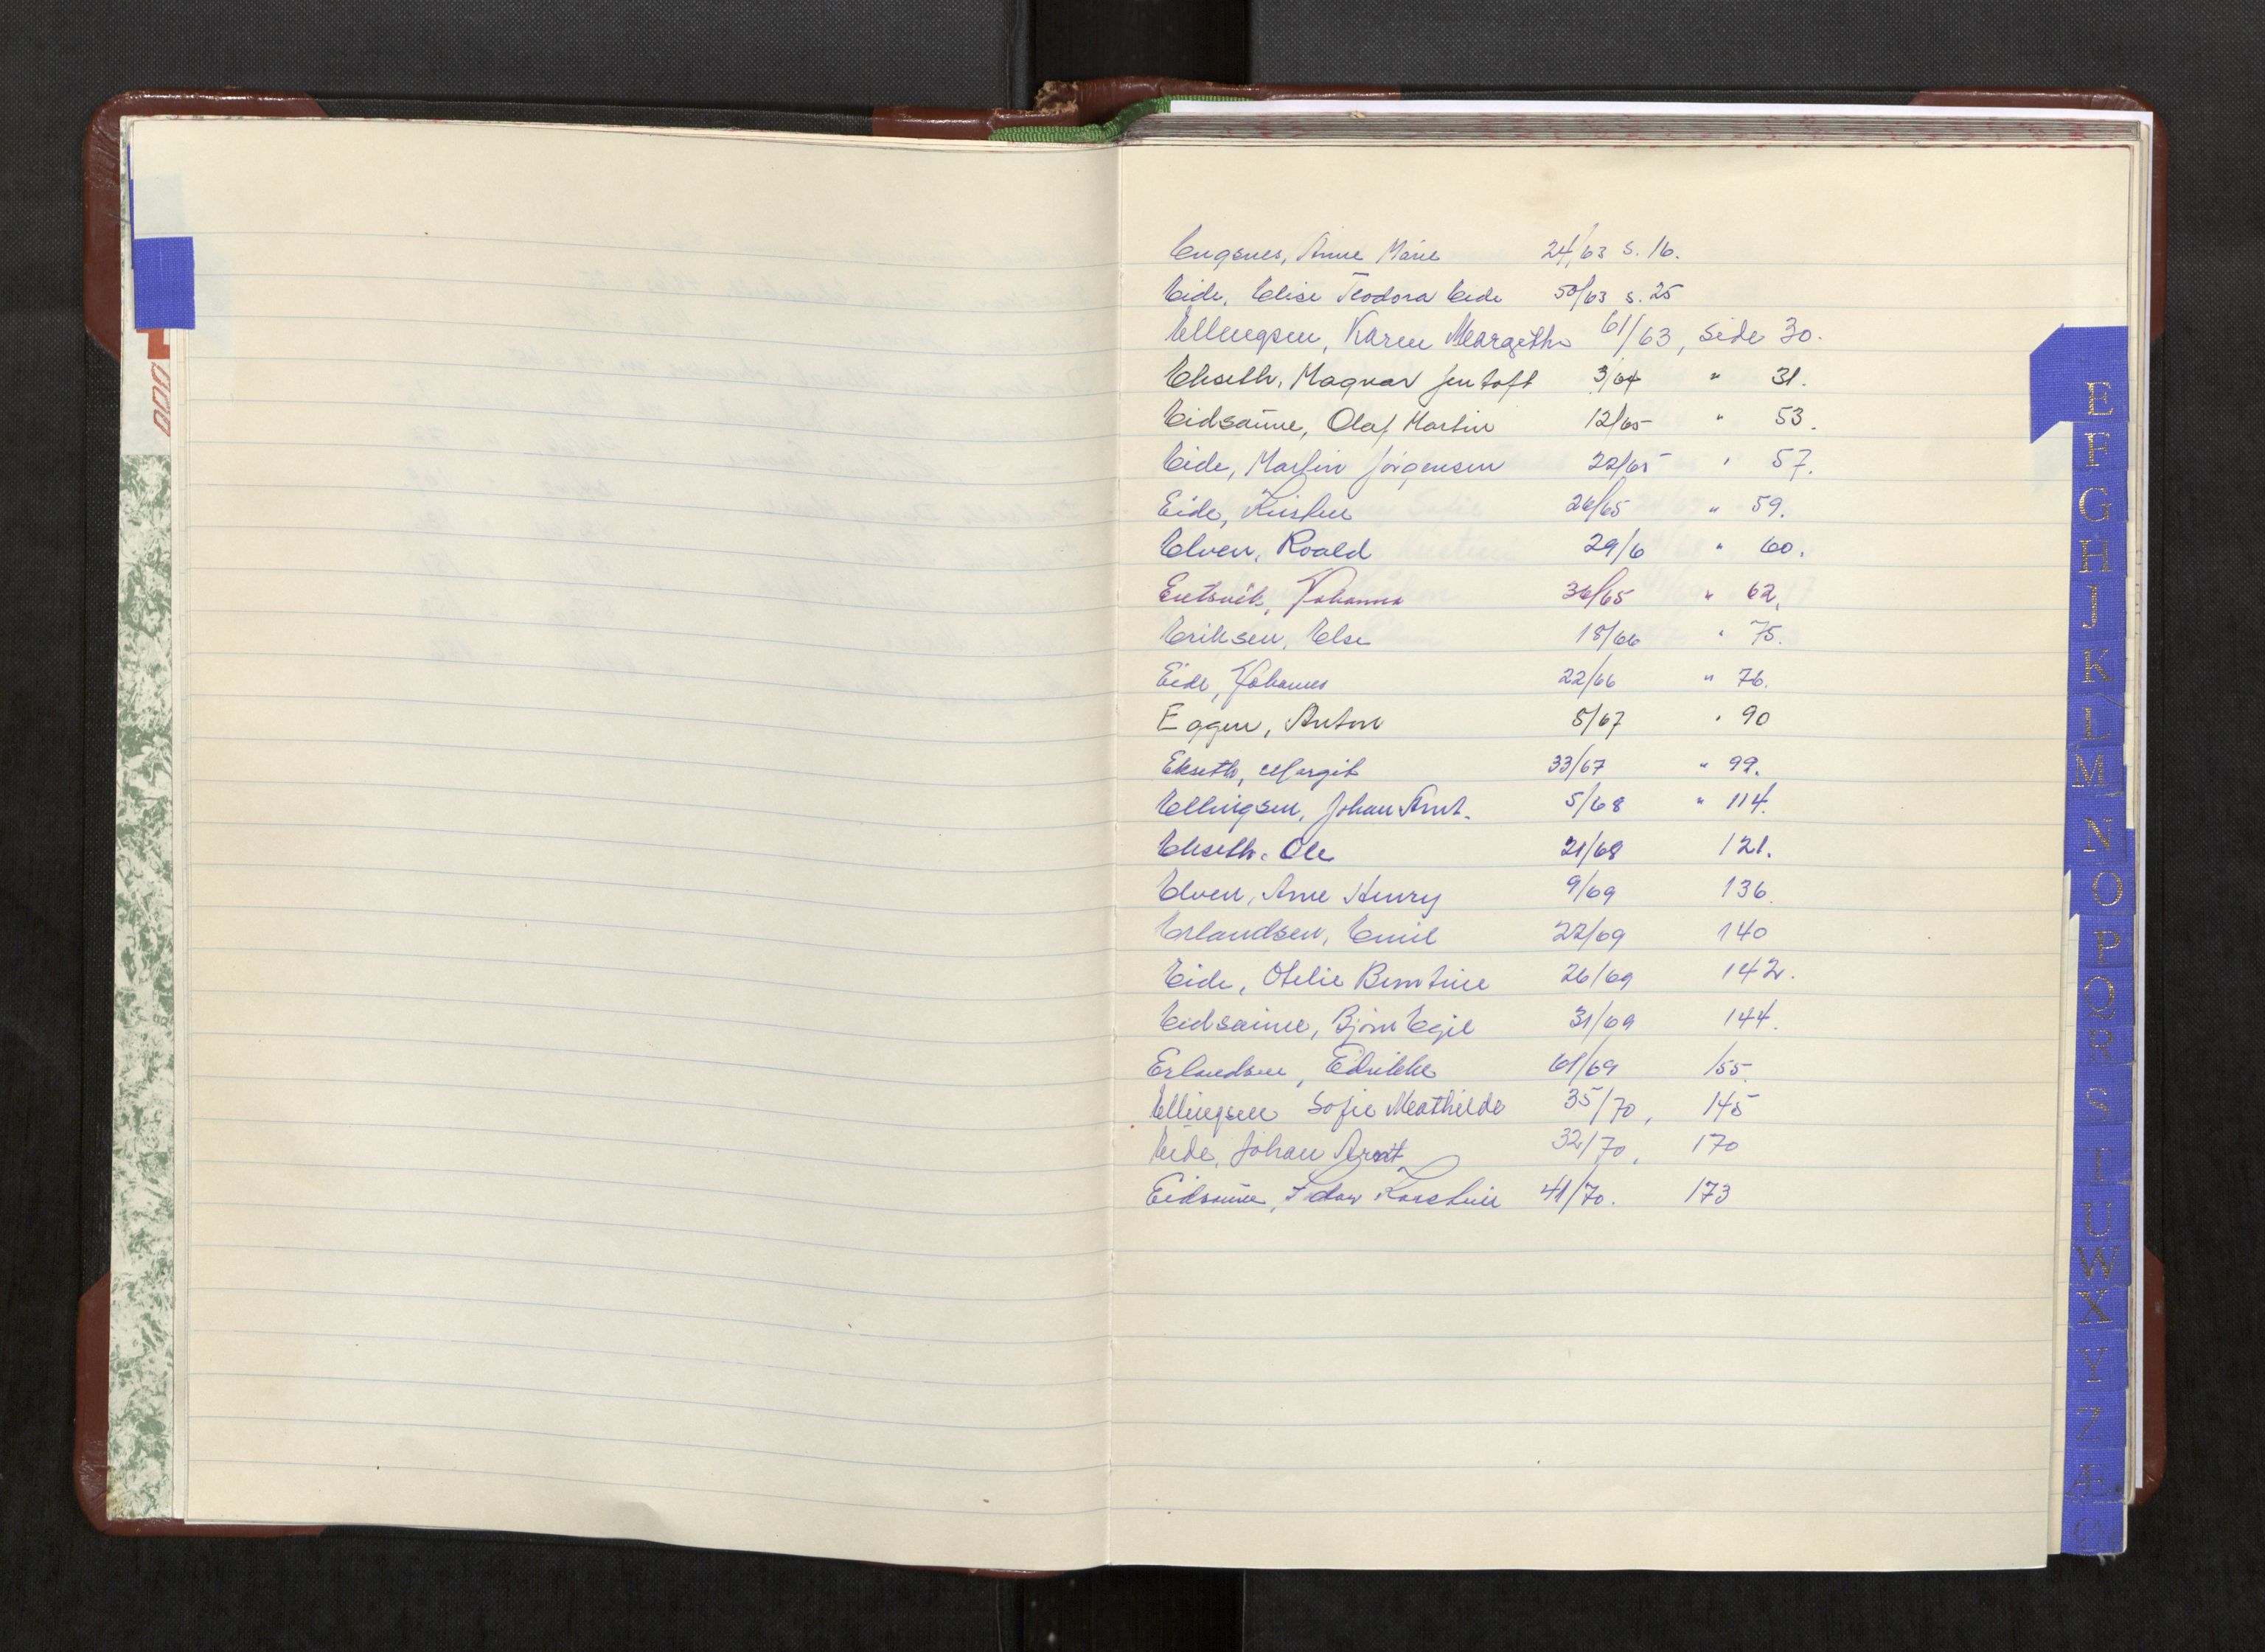 Engsnes, Anne Marie 24/63 s. 16.
Eide, Elise Teodora Eide 50/63 s. 25
Ellingsen, Karen Margethe 61/63, side 30.
Ekseth, Magnar Jentoft 3/64 " 31.
Eidsaune, Olaf Martin 12/65 " 53.
Eide, Martin Jörgensen 22/65 " 57.
Eide, Kirsten 26/65 " 59.
Elven, Roald 29/6 " 60.
Entsvik, Johanna 36/65 " 62,
Eriksen, Else 18/66 " 75.
Eide, Johannes 22/66 " 76.
Eggen, Anton 8/67 " 90
Ekseth, Margit 33/67 " 99.
Ellingsen, Johan Arnt. 5/68 " 114.
Ekseth, Ole 21/68 121.
Elven, Arne Henry 9/69 136.
Erlandsen, Emil 22/69 140
Eide, Otelie Berntine 26/69 142.
Eidsaune, Bjørn Egil 31/69 144.
Erlandsen, Edrikke 61/69 155.
Ellingsen Sofie Mathilde 35/70, 145
Eide, Johan Arnt 32/70, 170
Eidsaune, 41/70. 173
E
F
G
H
I
K
L
M
N
O
P
Q
R
S
T
U
W
X
Y
Z
Æ
Ø